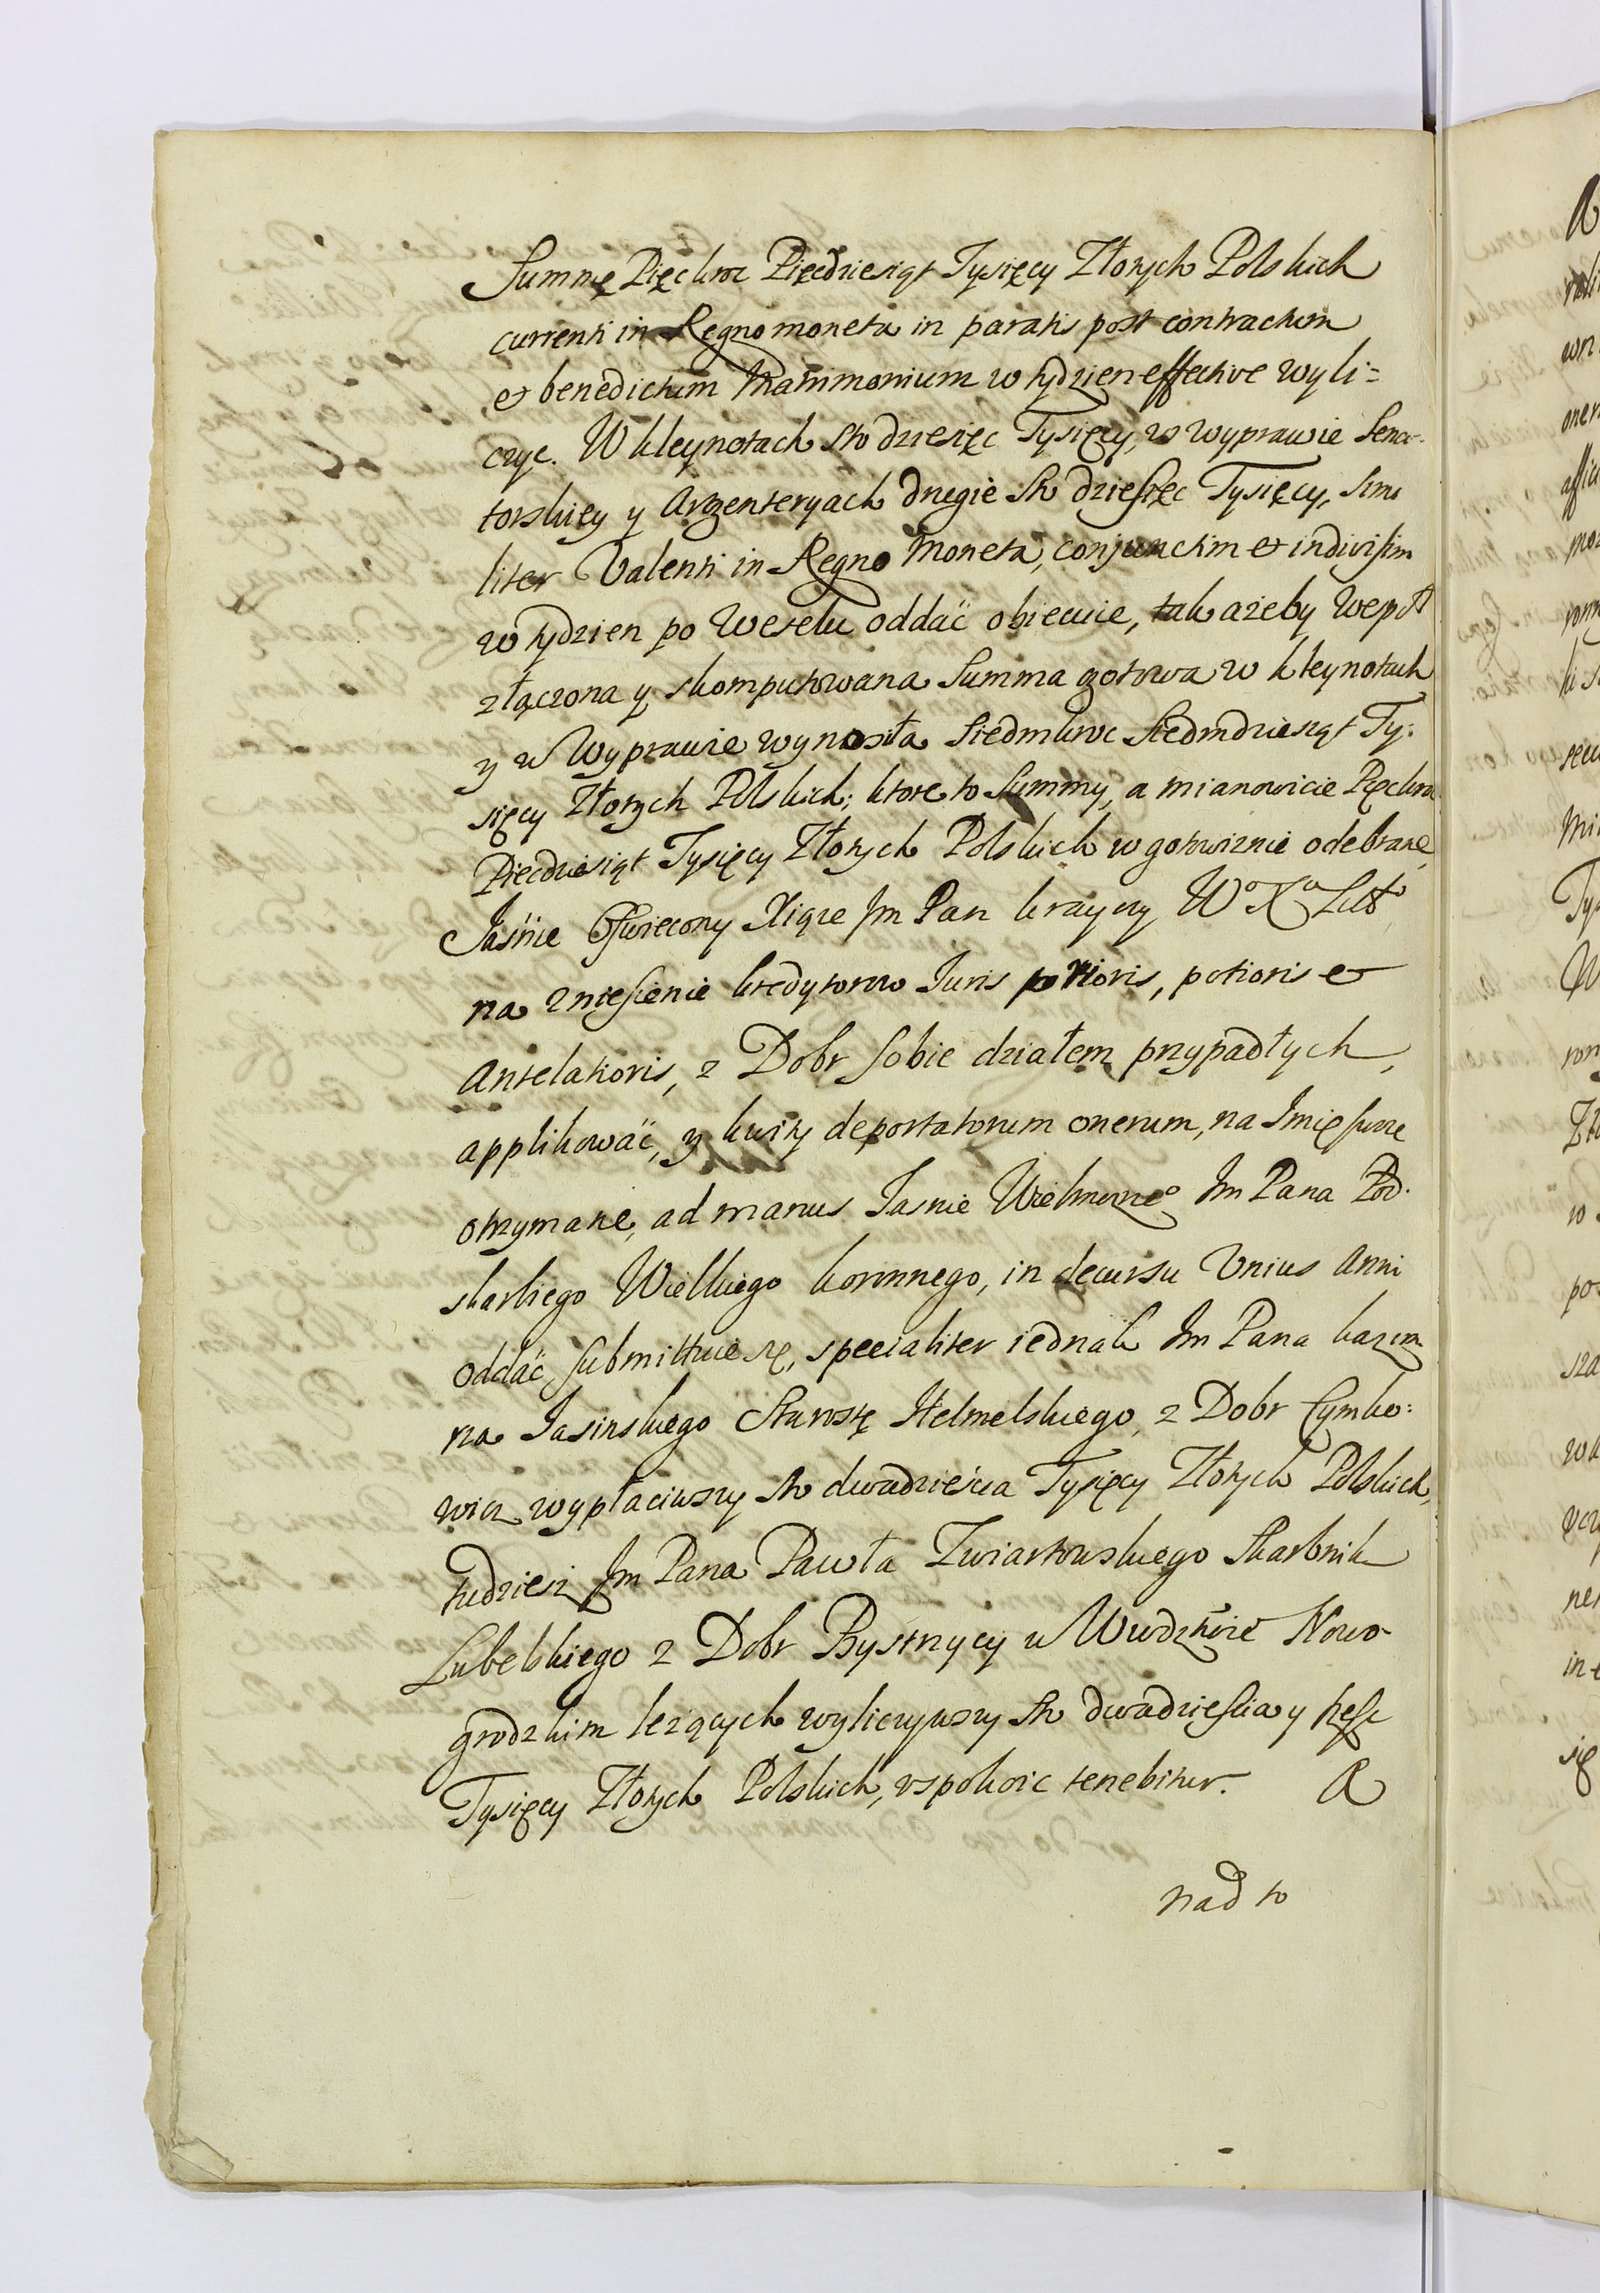 Summę Pięckroc Pięcdziesiąt Tysięcy Złotych Polskich
currenti in Regno moneta in paratis post contractum
et benedictum Matrimonium w tydzien effective wyli=
czyc. W kleynotach sto dziesięc Tysięcy, w wyprawie Sena-
torskiey y Argenteryach drugie sto dziesięc Tysięcy, simi
liter Valenti in Regno Moneta, conjunctim et indivisim
w tydzien po Weselu oddać obiecuie, tak ażeby wespoł
złączona y skomputowana Summa gotowa w kleynotach
y w Wyprawie wynosiła Siedmkroc Siedmdziesiąt Ty:
sięcy Złotych Polskich; ktore to Summy, a mianowicie Pięckroc
Pięcdziesiąt Tysięcy Złotych Polskich w gotowiznie odebrane,
Jaśnie Oswiecony Xiąze Jm Pan krayczy Wo Xa Litto
na zniesienie kredytorow Juris potioris, potioris et
Antelatioris, z Dobr sobie działem przypadłych,
applikować, y kwity deportatorum onerum, na Jmię swe
otrzymane, ad manus Jasnie Wielmozneo Jm Pana Pod:
skarbiego Wielkiego koronnego, in decursu Unius Anni
oddać submittuie się, specialiter iednak Jm Pana kazim
rza Jasinskiego Starostę Helmelskiego, z Dobr Cymko:
wicz wypłaciwszy sto dwadzieścia Tysięcy Złotych Polskich,
tudziesz Jm Pana Pawła Zwiartowskiego Skarbnik
Lubelskiego z Dobr Bystrzycy w Wwdztwie Nowo-
grodzkim leżących wyliczywszy sto dwadziescia y szesc
Tysięcy Złotych Polskich, uspokoic tenebitur. A
nad to